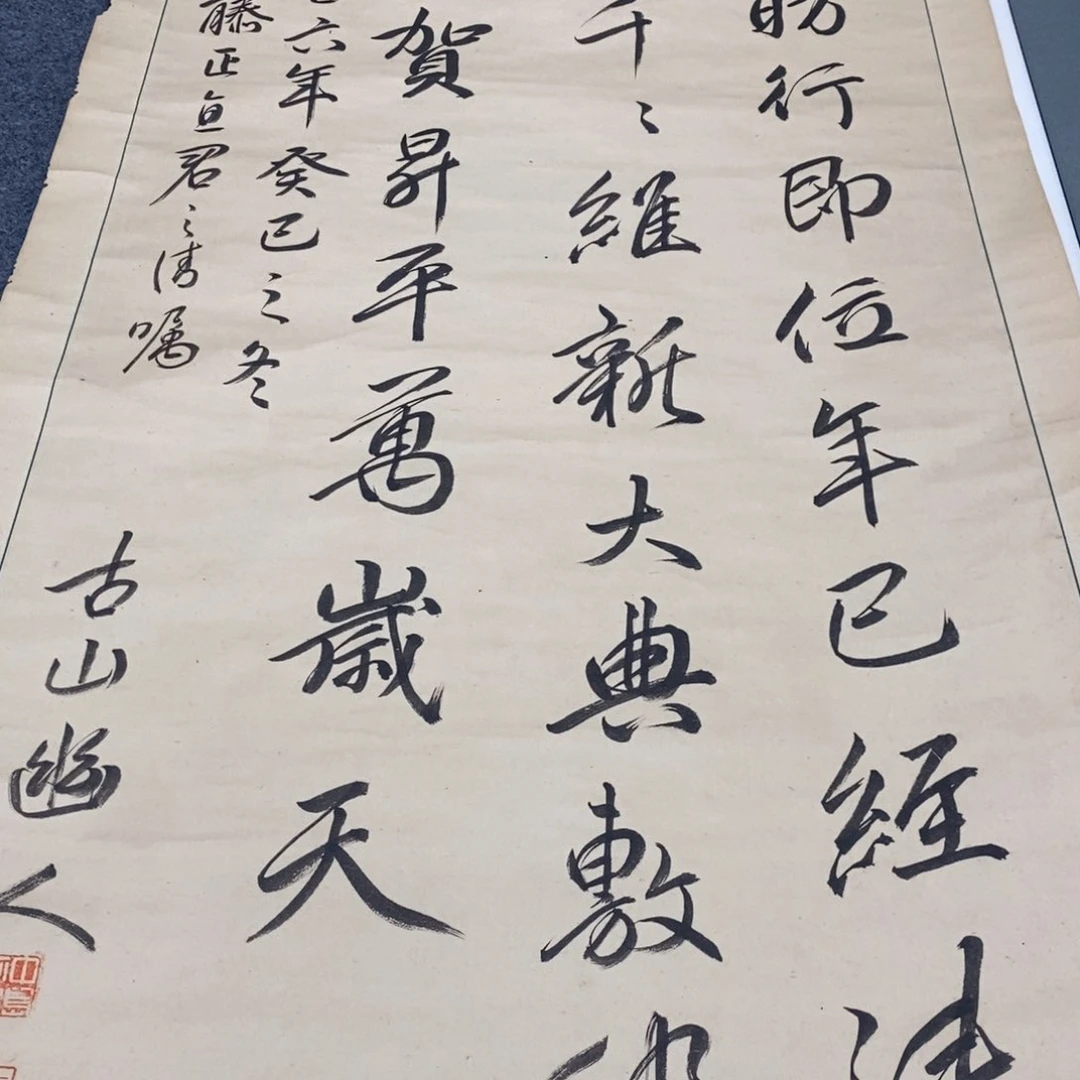 行即位年已經
千〻維新大典敷
賀昇平萬歲天
六年癸巳之冬
藤正直君之清嘱
古山幽人